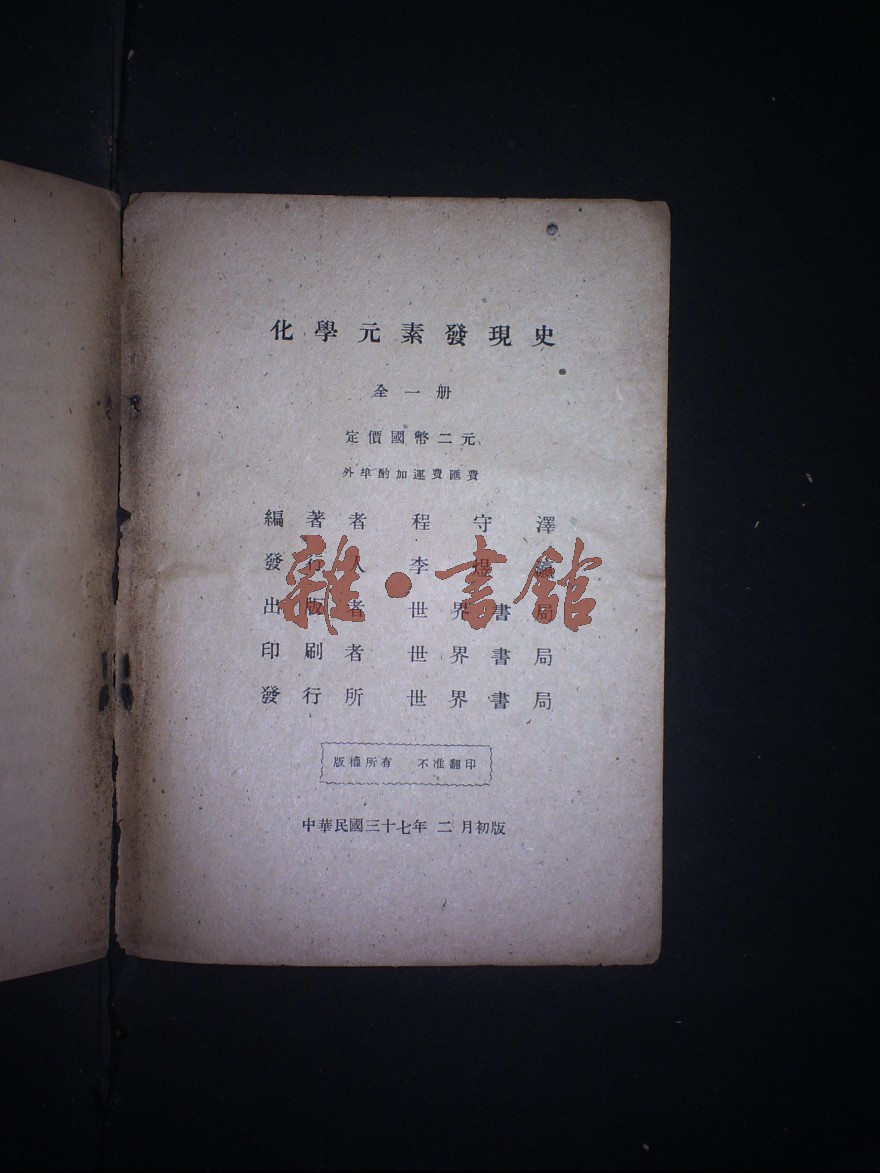 化學元素發現史
全一册
定價國幣二元
外埠酌加運費匯費
編著者 程守澤
發行人 李煜瀛
出版者 世界書局
印刷者 世界書局
發行所 世界書局
版權所有 不准翻印
中華民國三十七年二月初版
雜·書館